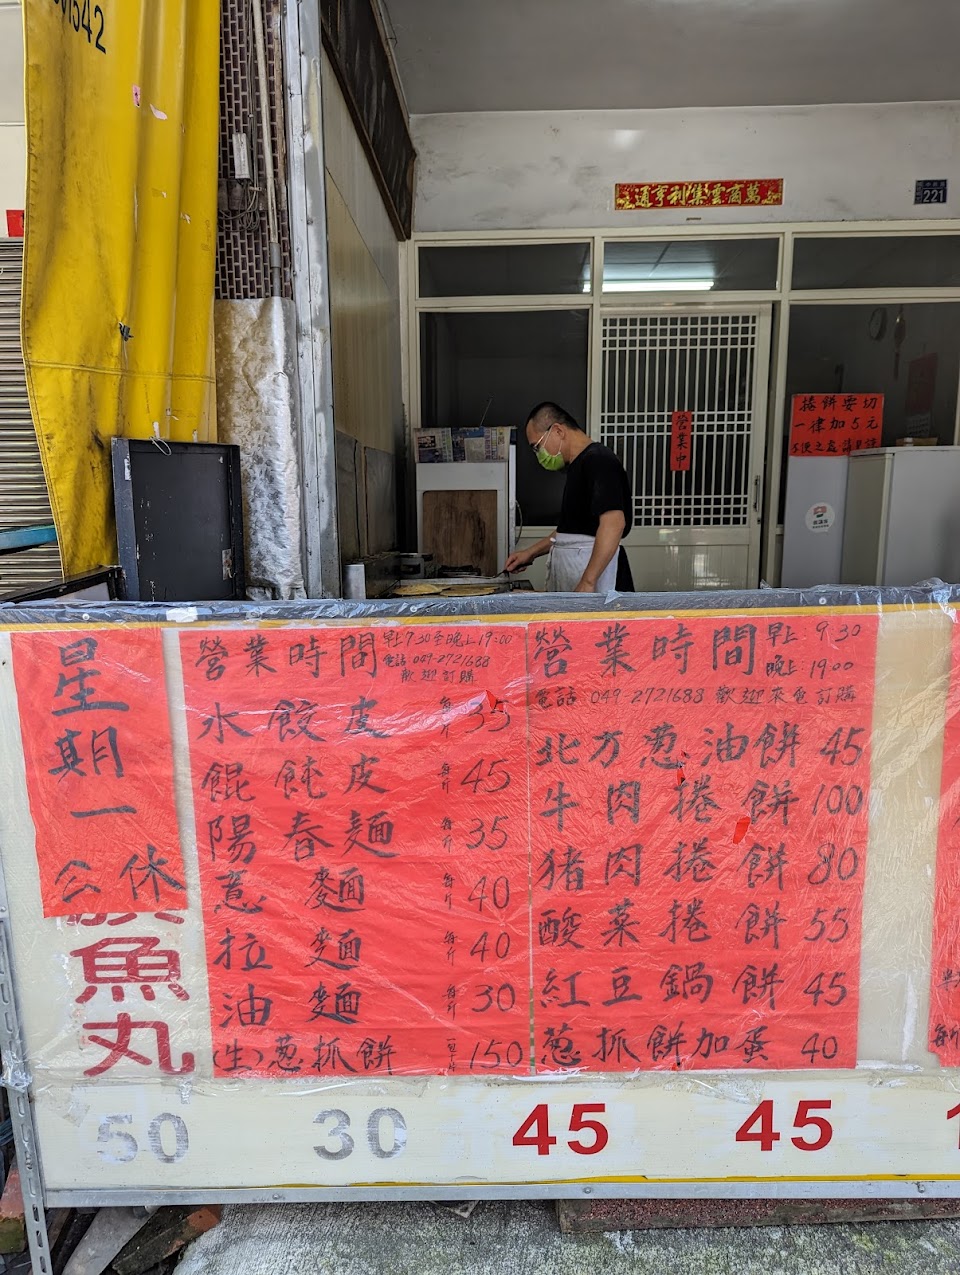 1542
萬商雲集利亨通
221
營業中
捲餅要切
一律加5元
不便之處請見諒
星
期
一
公休
魚
丸
營業時間
早上9:30至晚上19:00
電話 049-2721688
歡迎訂購
水餃皮 每斤 35
餛飩皮 每斤 45
陽春麵 每斤 35
薏麵 每斤 40
拉麵 每斤 40
油麵 每斤 30
(生)葱抓餅 150
營業時間 早上 9:30
晚上:19:00
電話:049-2721688 歡迎來電訂購
北方葱油餅 45
牛肉捲餅 100
豬肉捲餅 80
酸菜捲餅 55
紅豆鍋餅 45
葱抓餅加蛋 40
每斤
50 30 45 45